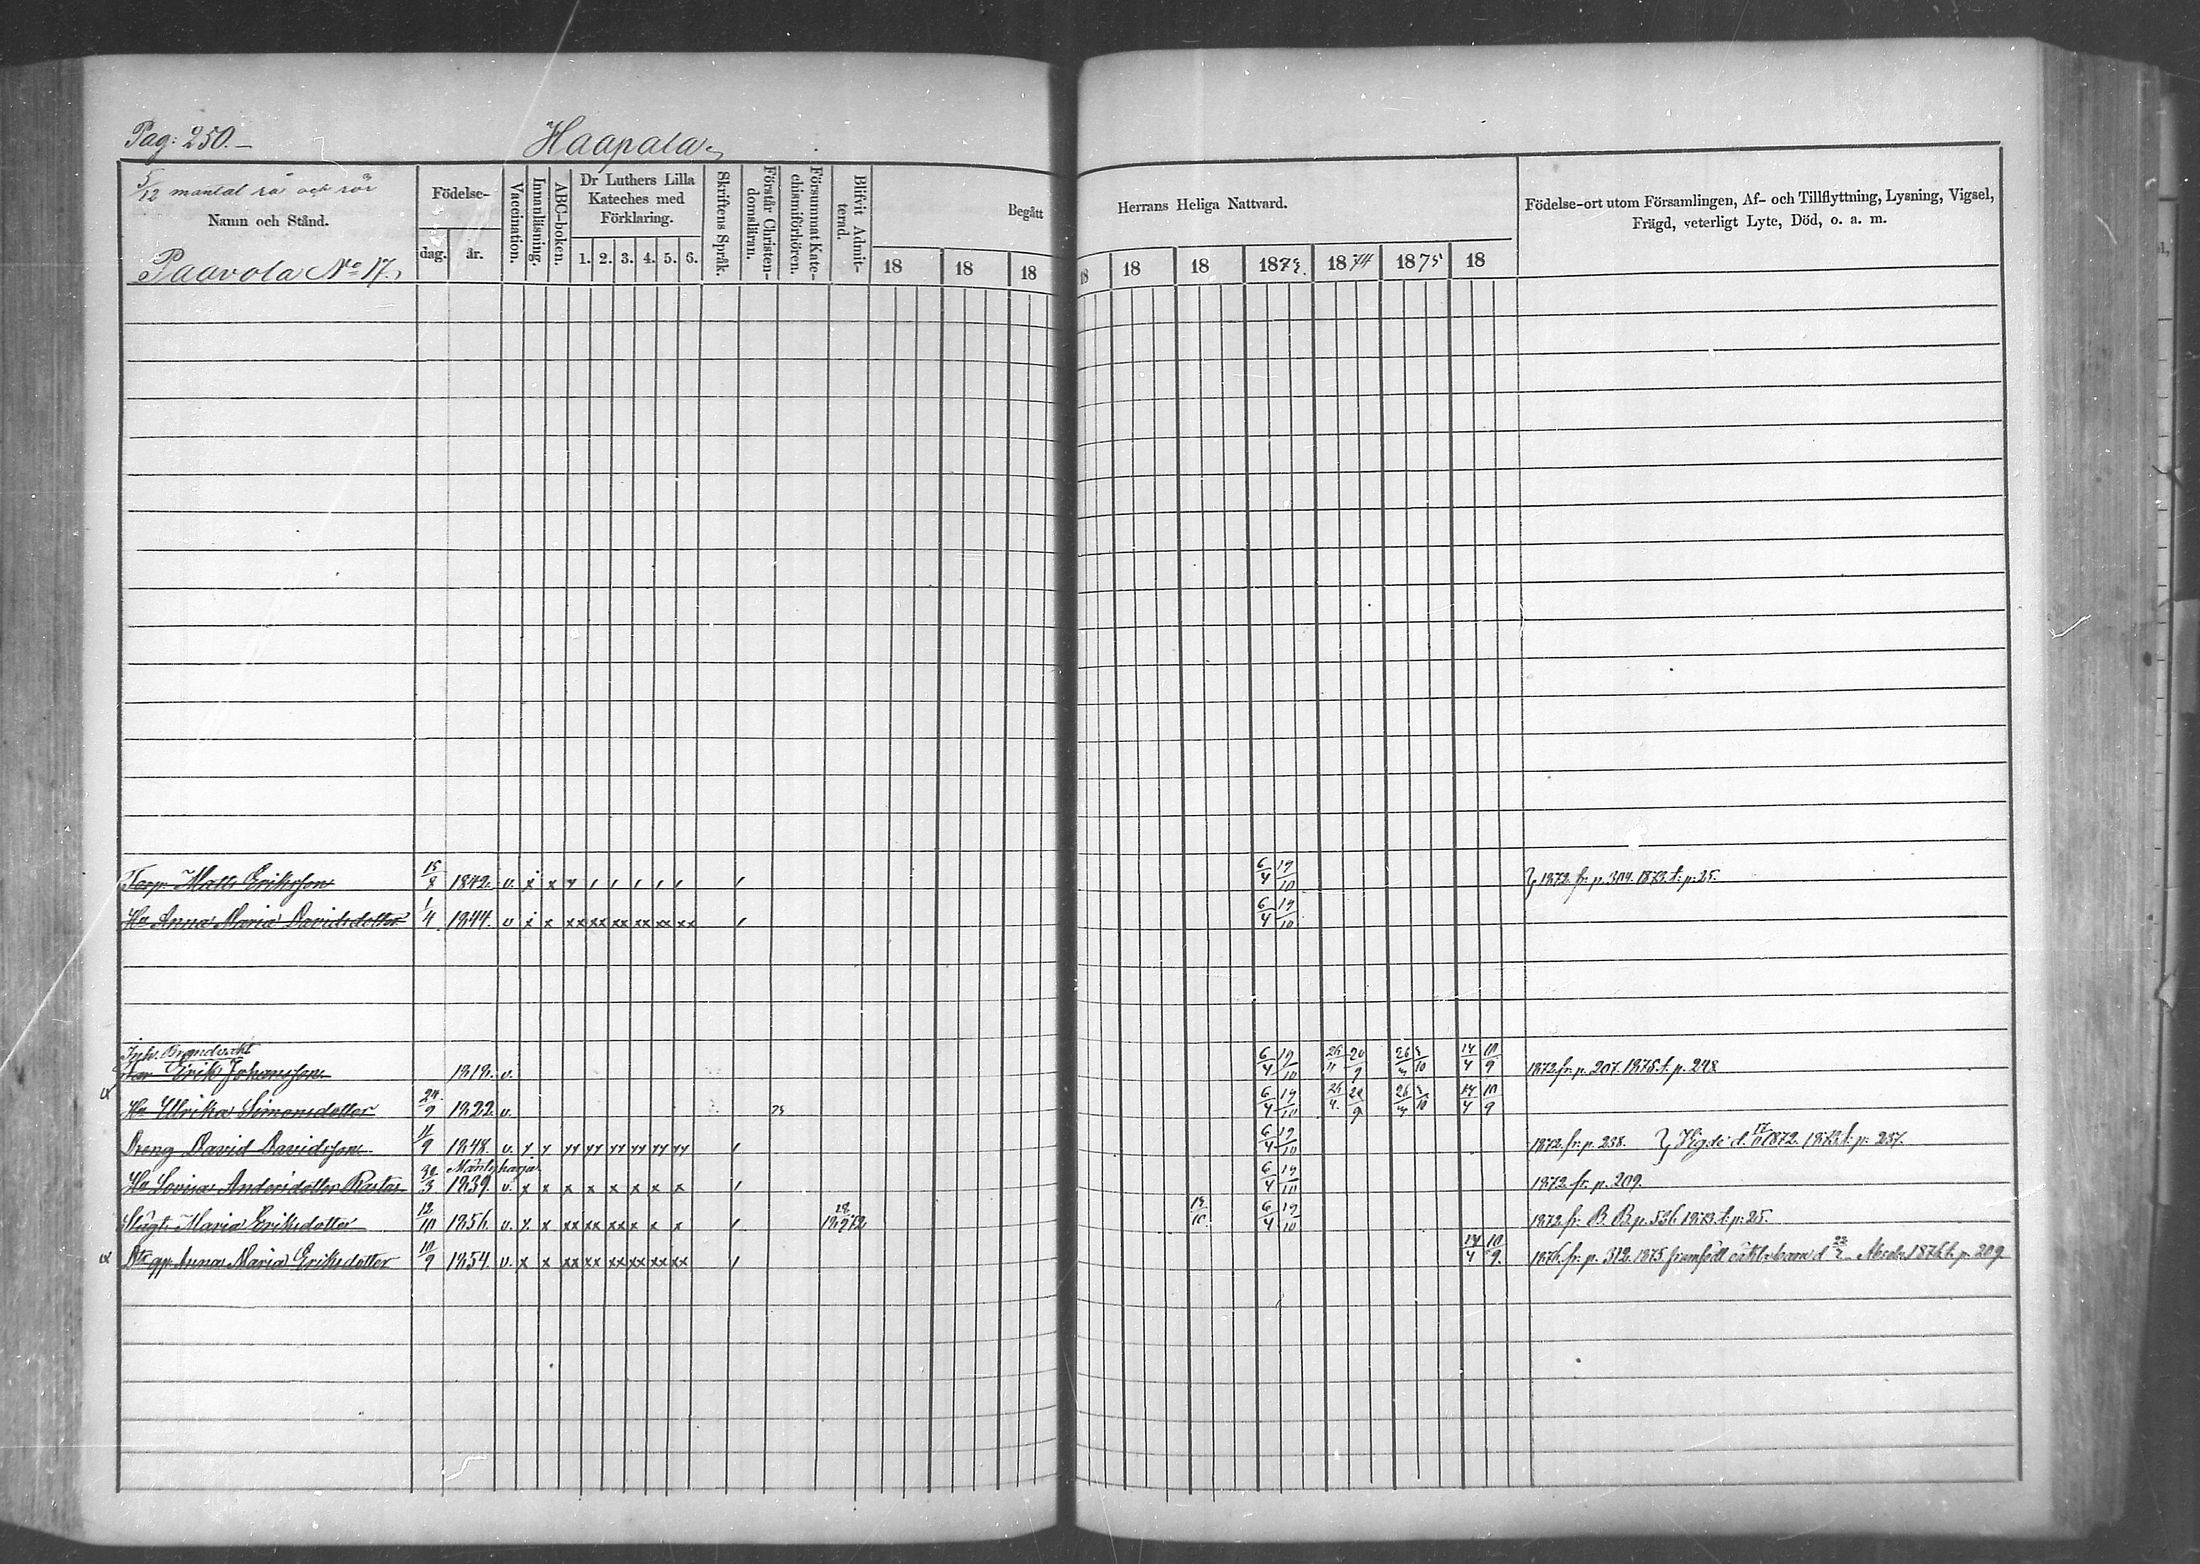 Pag: 250.
Haapala
5/12 mantal rå och rör
Namn och Stånd.
Paavola No 17.
Födelse-
dag. år.
Vaccination.
Innanläsning.
ABC-boken.
Dr Luthers Lilla Kateches med Förklaring.
1. 2. 3. 4. 5. 6.
Skriftens Språk.
Förstår Christendomsläran.
Försummat Katechismiförhören.
Blifvit Admitterad.
Begått Herrans Heliga Nattvard.
18 18 18 18 18 18 1873. 1874 1875 18
Födelse-ort utom Församlingen, Af- och Tillflyttning, Lysning, Vigsel,
Frägd, veterligt Lyte, Död, o. a. m.
Torp. Matts Eriksson 15/8 1842. v. x x 6/4 19/10 1872 fr. p. 304. 1873 t. p. 25.
Hu Anna Maria Davidsdotter 1/4 1844. v x xx xx xx xx xx xx 6/4 19/10
Inh. Brandvakt
Erik Johansson 1818. v. 6/4 19/10 20/9 3/10 14/4 10/9 1872 fr. p. 207. 1876 t. p. 248
Hu Ulrika Simonsdotter 24/9 1822. v. 6/4 19/10 20/9 3/10 14/4 10/9
Dreng David Davidsson 11/9 1848. v. 6/4 19/10 1872 fr. p. 258. Vigde d. 17/11 1872. 1873 t. p. 257.
Mäntyharju
Hu Lovisa Andersdotter Rastas 30/3 1839 v. x x x x x x x x 6/4 19/10 1872 fr. p. 209.
Maria Eriksdotter 12/10 1856. v. x x xx xx xx x x x 6/4 19/10 1872 fr. B. B. p. 536 1873 t. p. 25.
Anna Maria Eriksdotter 10/9 1854. v. x x xx xx xx xx xx xx 14/4 10/9. 1876 fr. p. 312. 1875 framfödt oäkta barn d. 1876 t. p. 209